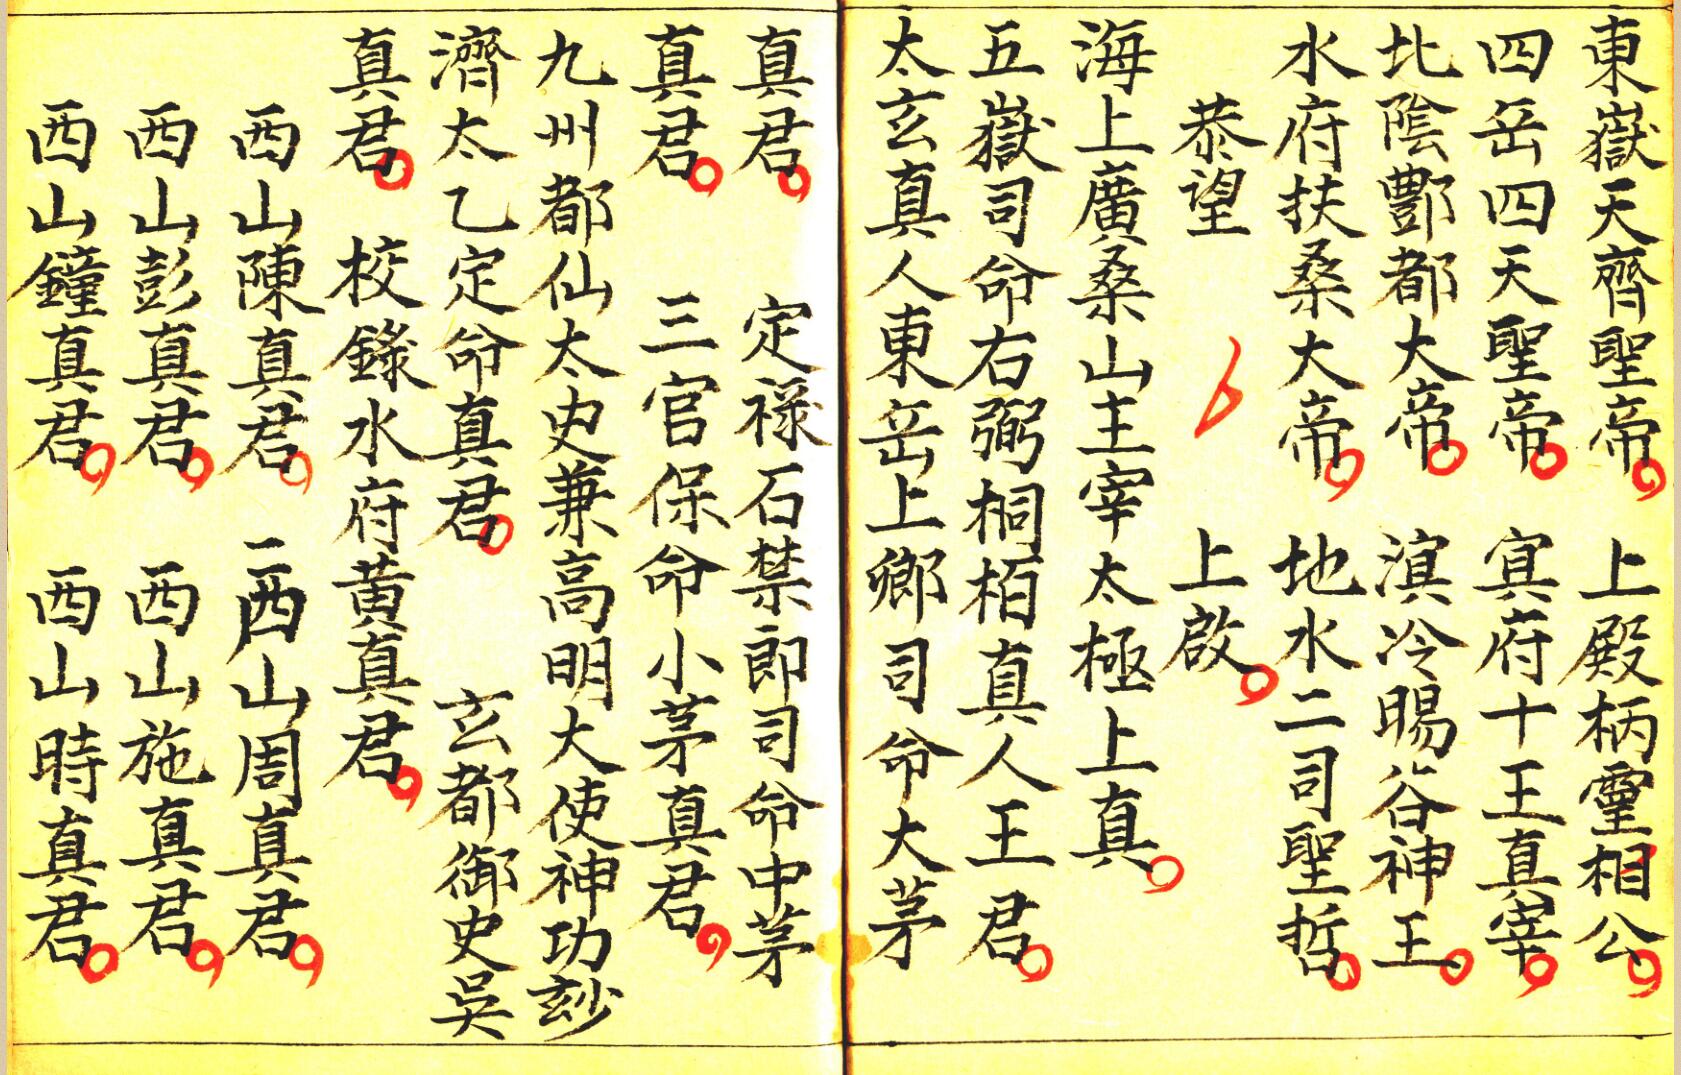 東嶽天齊聖帝 上殿柄靈相公
四岳四天聖帝 㝠府十王真宰
北陰酆都大帝 溟冷賜谷神王
水府扶桑大帝 地水二司聖哲
恭望 上啟
海上廣桑山主宰太極上真
五嶽司命右弼桐栢真人王君
太玄真人東岳上卿司命大茅
真君 定禄石禁郎司命中茅
真君 三官保命小茅真君
九州都仙太史兼高明大使神功玅
濟太乙定命真君 玄都御史吳
真君 校錄水府黄真君
西山陳真君 西山周真君
西山彭真君 西山施真君
西山鐘真君 西山時真君